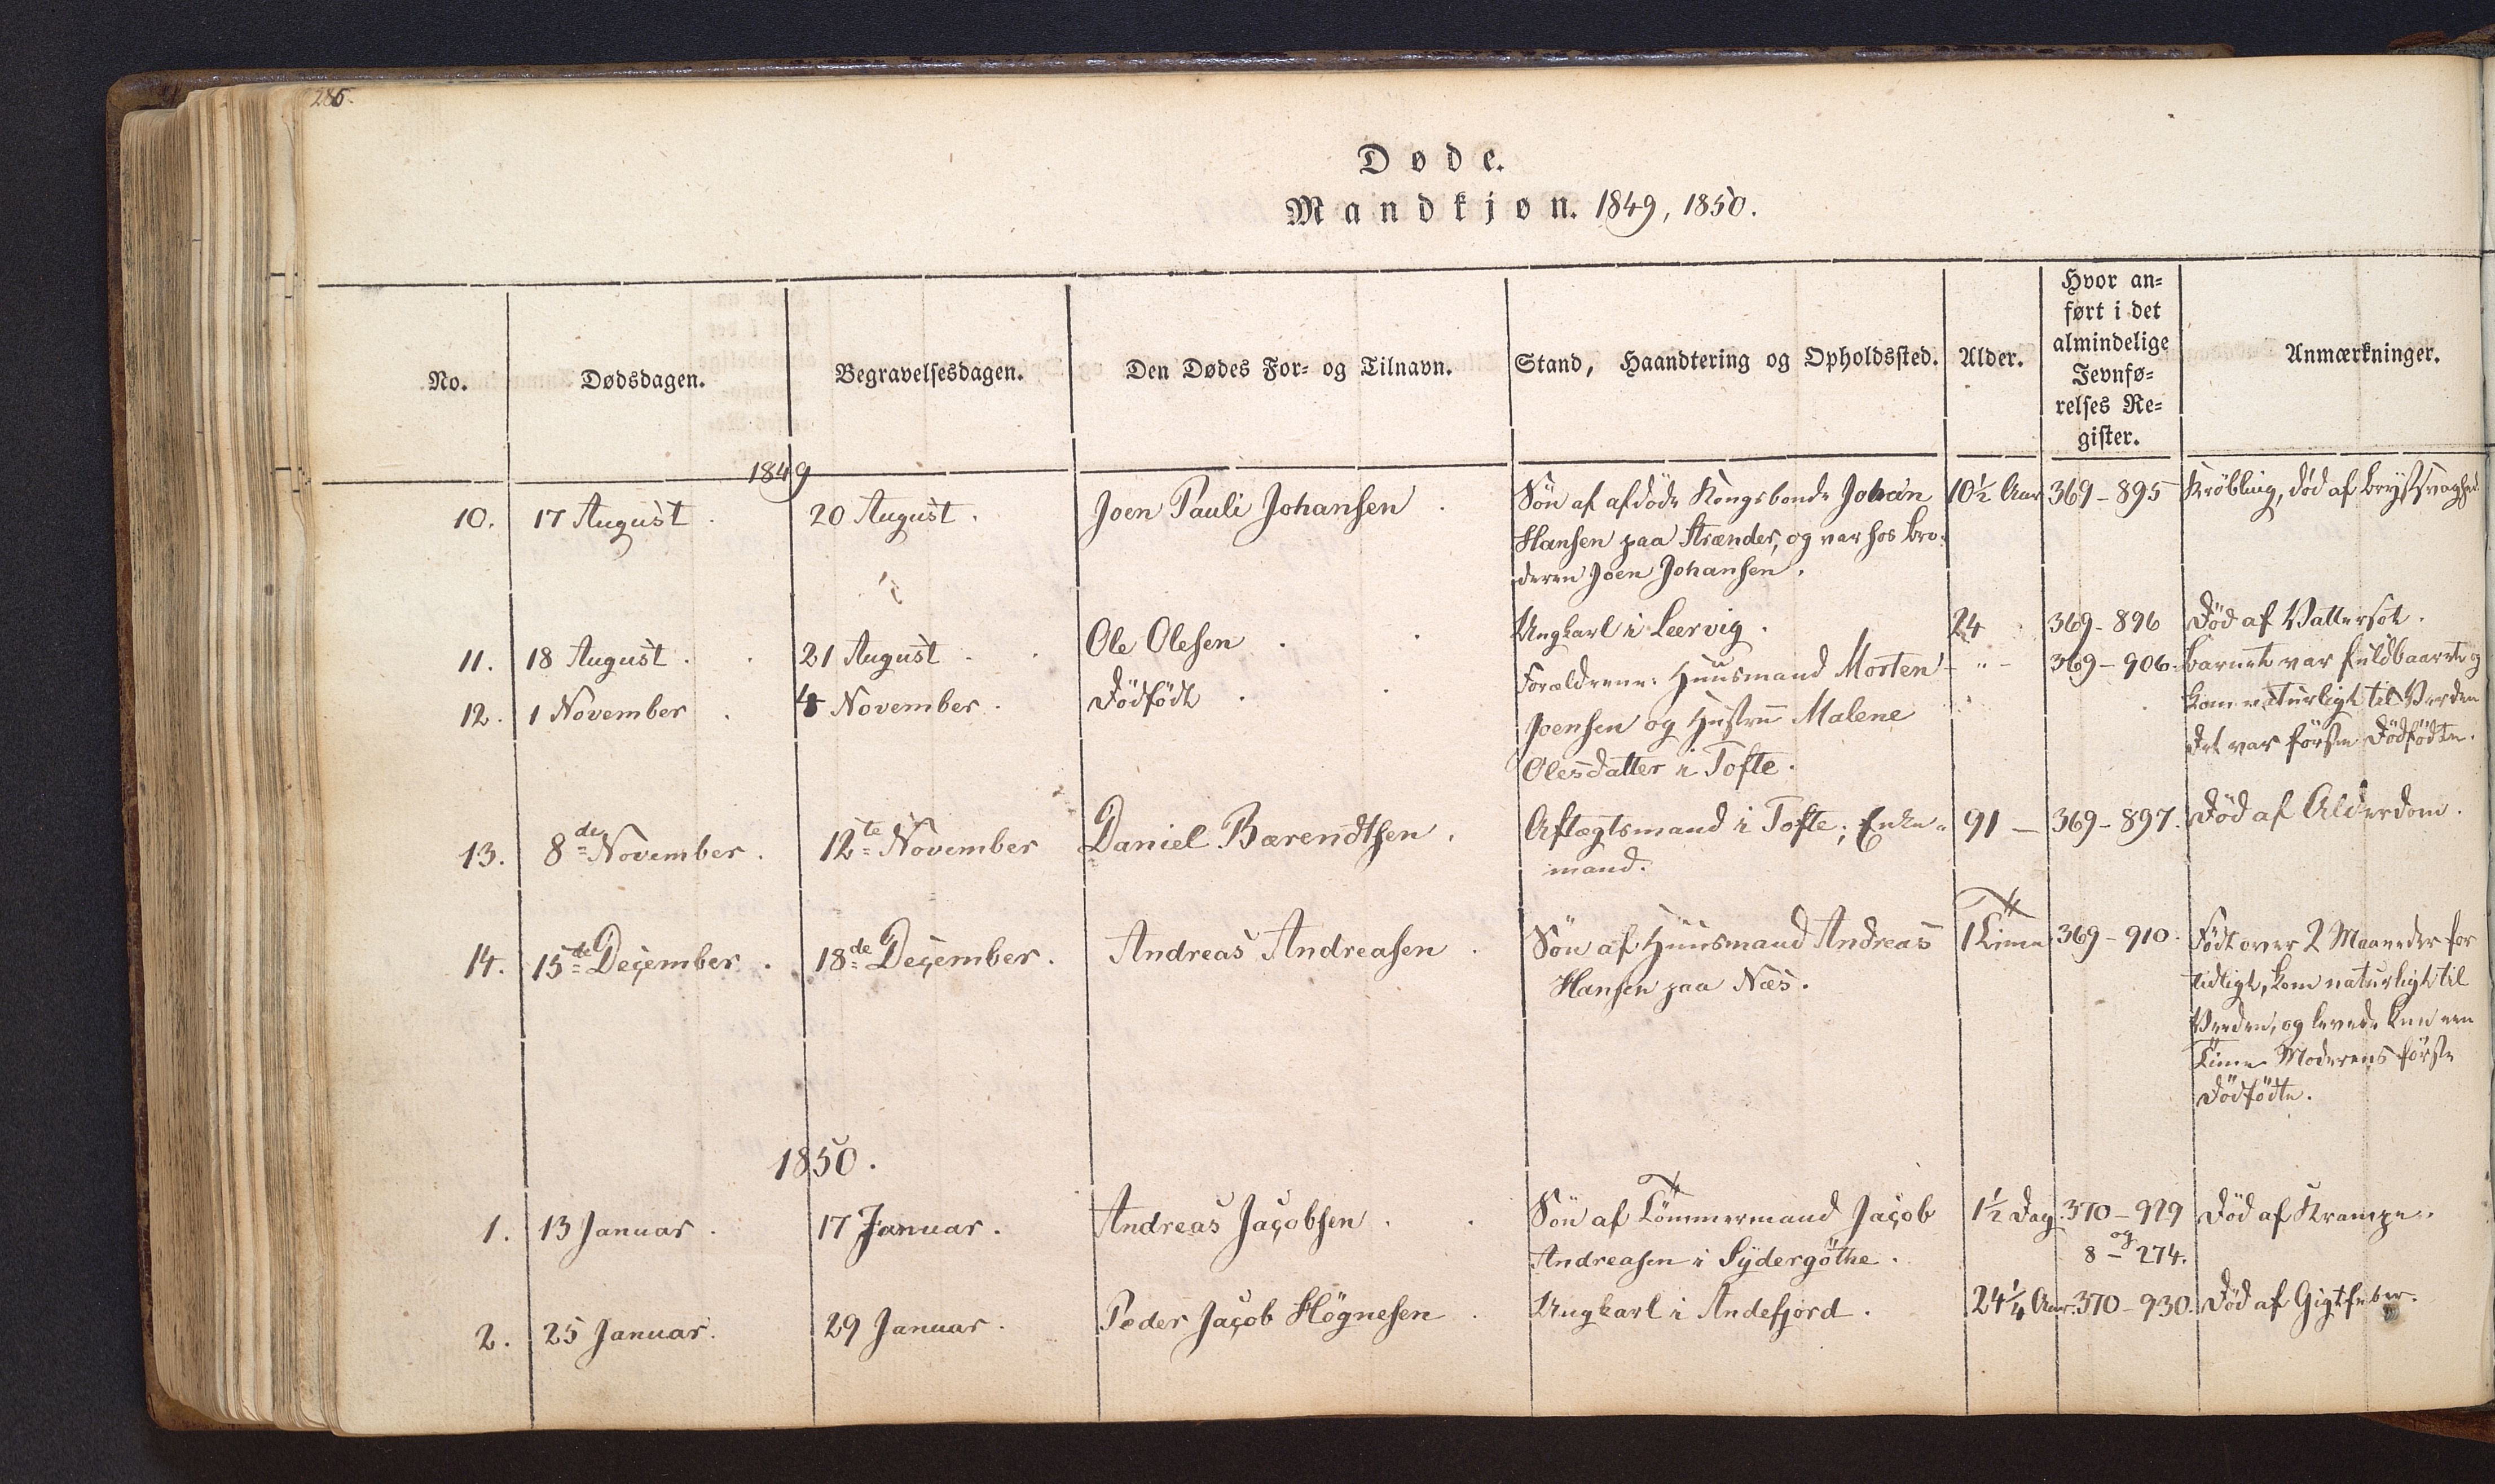 286.
Døde.
Mandkjøn. 1849, 1850.
No.
Dødsdagen.
Begravelsesdagen.
Den Dødes For- og Tilnavn.
Stand, Haandtering og Opholdssted.
Alder.
Hvor an-
ført i det
almindelige
Jevnfø-
relses Re-
gister.
Anmærkninger.
1849
10. 17 August. 20 August. Joen Pauli Johansen. Søn af afdøde Kongsbonde Johan 10½ Aar 369-895 Krøbling, død af Brystsvaghed
Hansen paa Strænder, og var hos Bro-
deren Joen Johansen.
11. 18 August. 21 August. Ole Olesen. Ungkarl i Leervig. 24 369-896 Død af Vattersot.
12. 1 November. 4 November. Dödfödt. Forældrene: Huusmand Morten - " - 369-906. Barnet var fuldbaaret og
Joensen og Hustru Malene kom naturligt til Verden
Olesdatter i Tofte. Det var första Dödfödte.
13. 8de November. 12te November Daniel Bærendtsen. Aftægtsmand i Tofte; Enke- 91 — 369-897. Död af Alderdom.
mand.
14. 15de December. 18de December. Andreas Andreasen. Søn af Huusmand Andreas 1 Time 369-910. Födt over 2 Maaneder for
Hansen paa Næs. tidligt, kom naturligt til
Verden, og levede kun een
Time Moderens förste
Dödfödte.
1850.
1. 13 Januar. 17 Januar. Andreas Jacobsen. Søn af Tömmermand Jacob 1½ Dag. 370-929 Död af Krampe.
Andreasen i Sydergöthe. og
8-274.
2. 25 Januar. 29 Januar. Peder Jacob Högnesen. Ungkarl i Andefjord. 24¼ Aar. 370-930. Död af Gigtfeber.